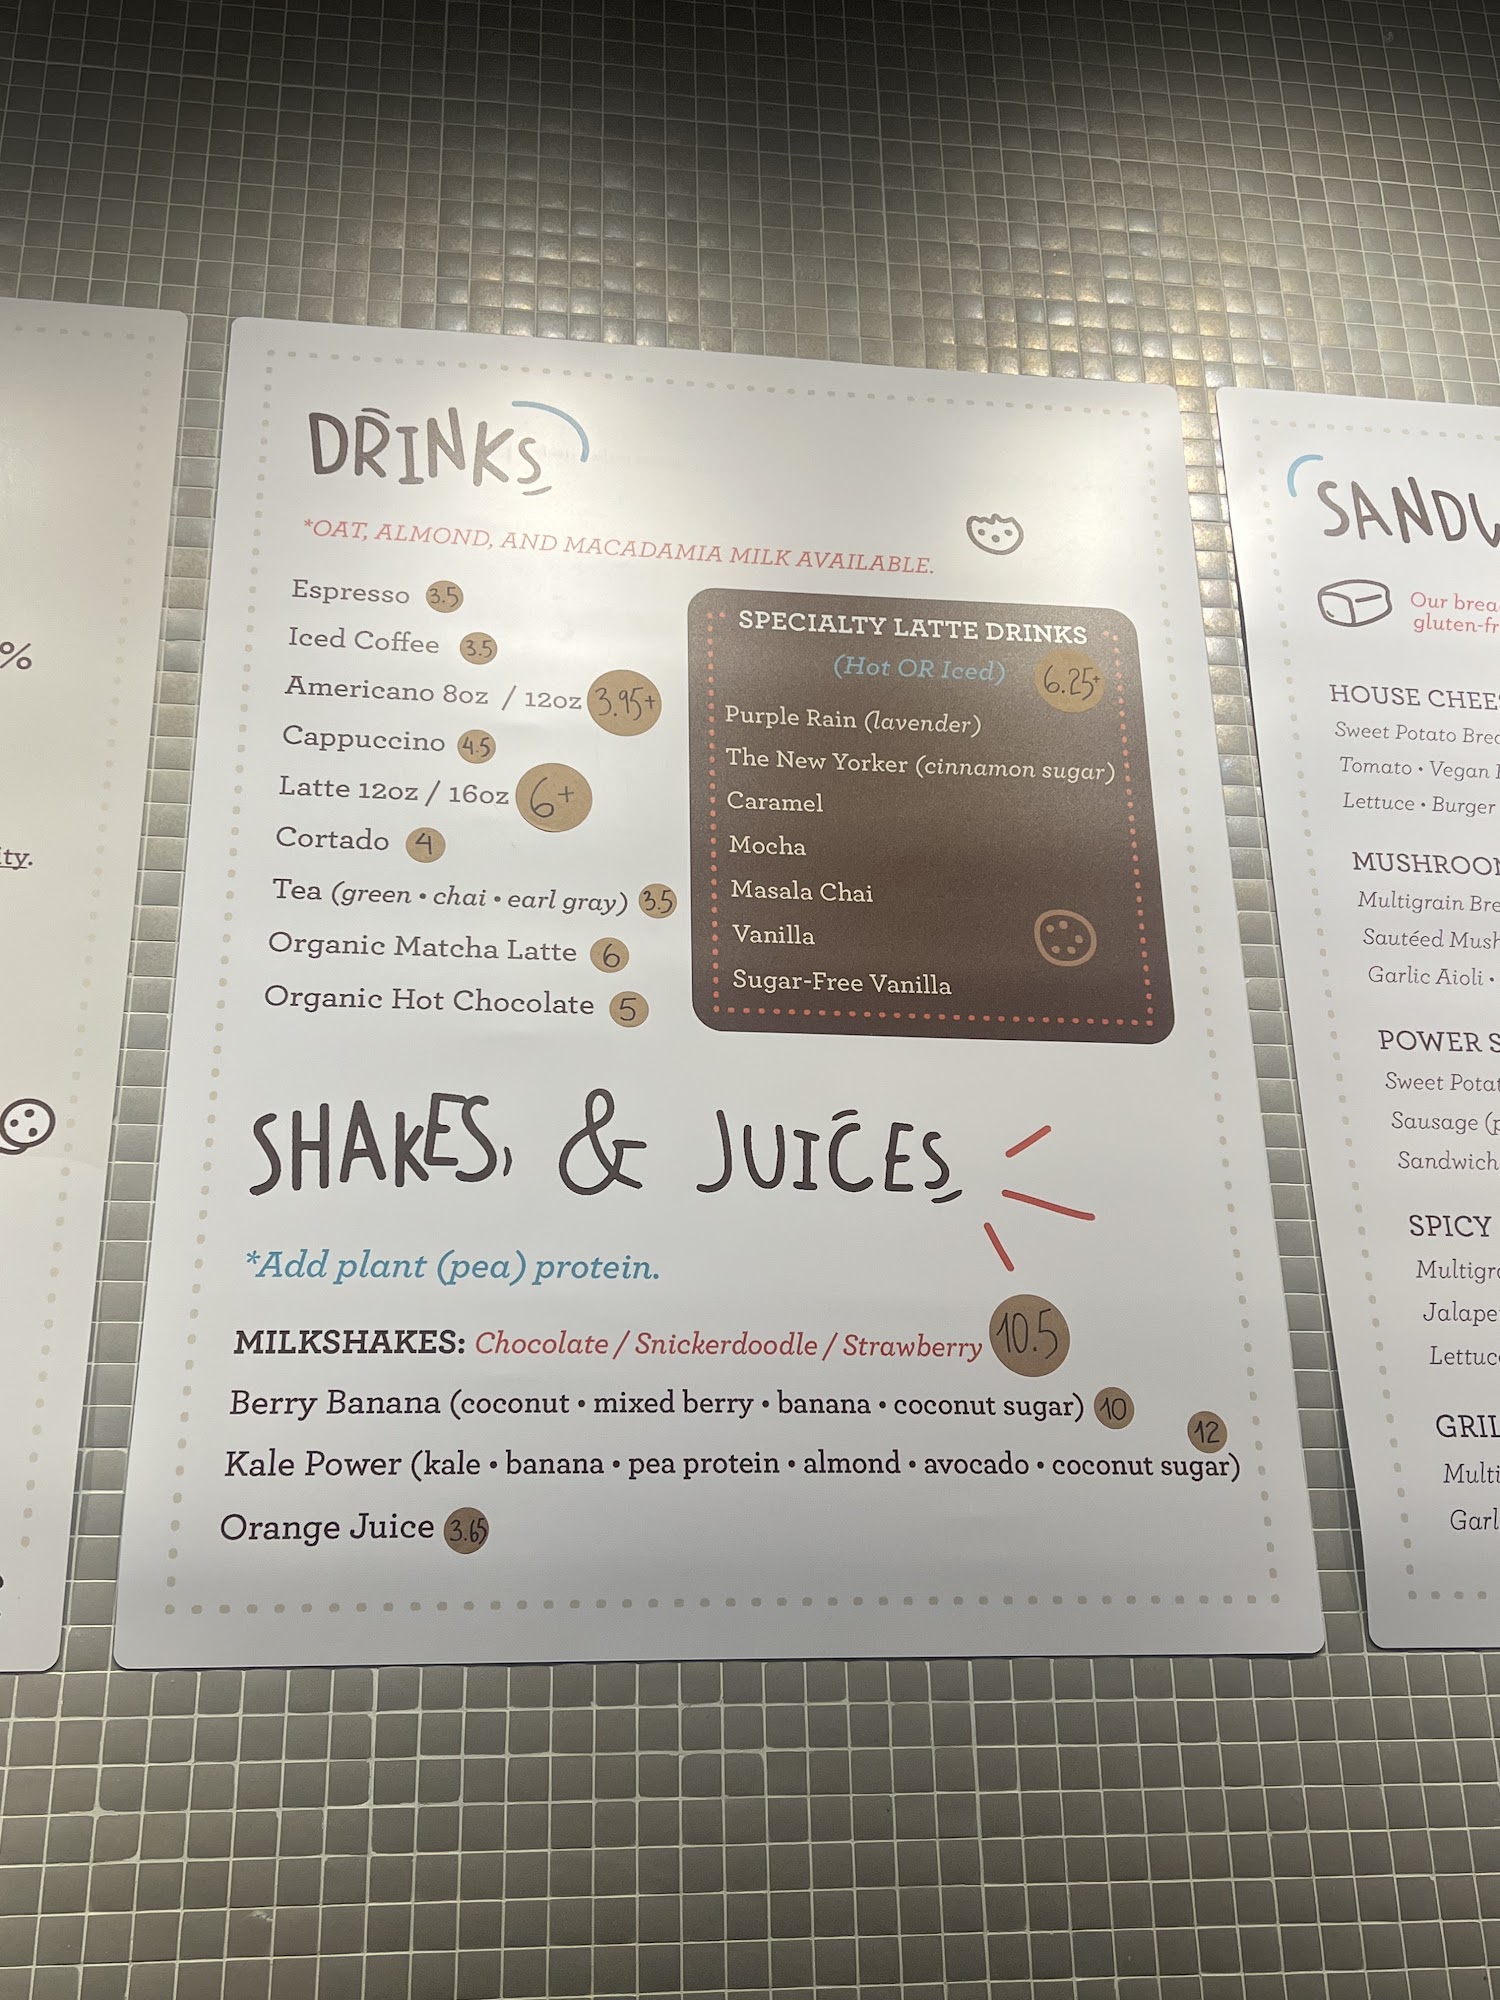 %
ity.
DRINKS
*OAT, ALMOND, AND MACADAMIA MILK AVAILABLE.
Espresso 3.5
Iced Coffee 3.5
Americano 8oz / 12oz 3.95+
Cappuccino 4.5
Latte 12oz / 16oz 6+
Cortado 4
Tea (green • chai • earl gray) 3.5
Organic Matcha Latte 6
Organic Hot Chocolate 5
SPECIALTY LATTE DRINKS
(Hot OR Iced) 6.25+
Purple Rain (lavender)
The New Yorker (cinnamon sugar)
Caramel
Mocha
Masala Chai
Vanilla
Sugar-Free Vanilla
SHAKES, & JUICES
*Add plant (pea) protein.
MILKSHAKES: Chocolate / Snickerdoodle / Strawberry 10.5
Berry Banana (coconut • mixed berry • banana • coconut sugar) 10
12
Kale Power (kale • banana • pea protein • almond • avocado • coconut sugar)
Orange Juice 3.65
SANDW
Our brea
gluten-fr
HOUSE CHEES
Sweet Potato Brea
Tomato • Vegan
Lettuce • Burger
MUSHROOM
Multigrain Bre
Sautéed Mush
Garlic Aioli •
POWER S
Sweet Potat
Sausage (p
Sandwich
SPICY
Multigra
Jalape
Lettuc
GRIL
Multi
Garl